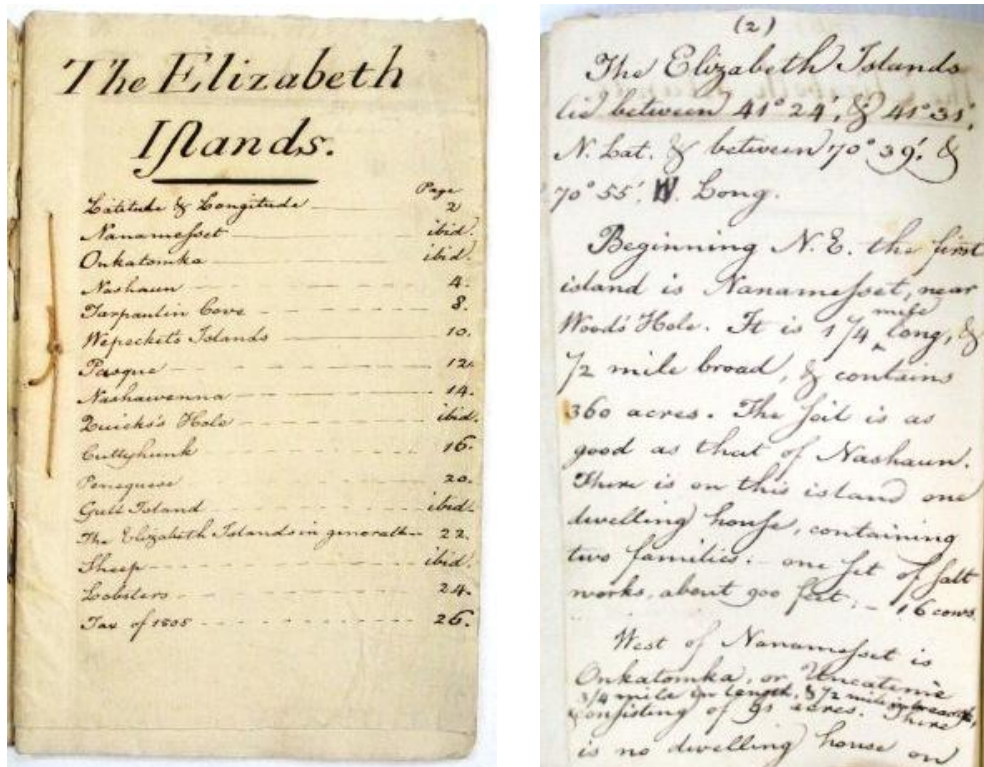 The Elizabeth
Iſlands.
Page
Latitude & Longitude 2
Nanameſset ibid.
Onkatomka ibid.
Nashaun 4.
Tarpaulin Cove 8.
Wepeckets Islands 10.
Pasque 12.
Nashawenna 14.
Quicks's Hole ibid.
Cuttyhunk 16.
Penequese 20.
Gull Island ibid.
The Elizabeth Islands in general 22.
Sheep ibid.
Lobsters 24.
Tax of 1805 26.
(2)
The Elizabeth Islands
lie between 41° 24', & 41° 31',
N. Lat. & between 70° 39', &
70° 55'. W. Long.
Beginning N. E. the first
island is Nanameſset, near
Wood's Hole. It is 1 1/4 mile long, &
1/2 mile broad, & contains
360 acres. The ſoil is as
good as that of Nashaun.
There is on this island one
dwelling houſe, containing
two families: – one ſet of ſalt
works, about 900 feet; – 16 cows.
West of Nanameſset is
Onkatomka, or Uncatenic
3/4 mile in length, & 1/2 mile in breadth,
consisting of acres. There
is no dwelling house on